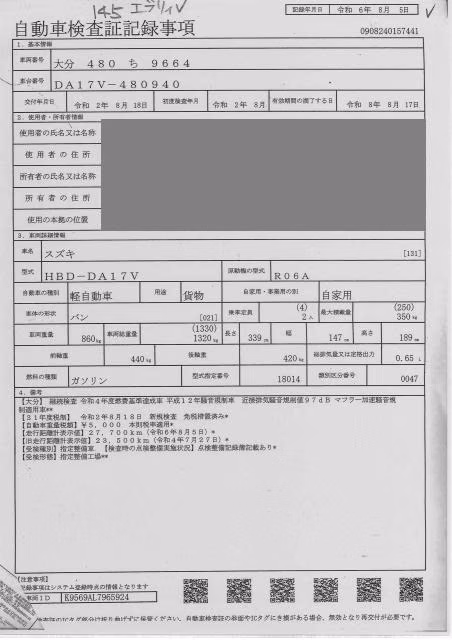 145 エブリィV
記録年月日 令和 6年 8月 5日
自動車検査証記録事項
0908240157441
1．基本情報
車両番号 大分 480 ち 9664
車台番号 DA17V-480940
交付年月日 令和 2年 8月 18日 初度検査年月 令和 2年 8月 有効期間の満了する日 令和 8年 8月 17日
2．使用者・所有者情報
使用者の氏名又は名称
使用者の住所
所有者の氏名又は名称
所有者の住所
使用の本拠の位置
3．車両詳細情報
車名 スズキ [131]
型式 HBD-DA17V 原動機の型式 R06A
自動車の種別 軽自動車 用途 貨物 自家用・事業用の別 自家用
車体の形状 バン [021] 乗車定員 (4) 2人 最大積載量 (250) 350kg
車両重量 860kg 車両総重量 (1330) 1320kg 長さ 339cm 幅 147cm 高さ 189cm
前軸重 440kg 後軸重 420kg 総排気量又は定格出力 0.65L
燃料の種類 ガソリン 型式指定番号 18014 類別区分番号 0047
4．備考
【大分】 継続検査 令和4年度燃費基準達成車 平成12年騒音規制車 近接排気騒音規制値97dB マフラー加速騒音規
制適用車**
【31年度税制】 令和2年8月18日 新規検査 免税措置済み*
【自動車重量税額】¥5，000 本則税率適用*
【走行距離計表示値】27，700km（令和6年8月5日）*
【旧走行距離計表示値】23，500km（令和4年7月27日）*
【受検種別】指定整備車 【検査時の点検整備実施状況】点検整備記録簿記載あり*
【受検形態】指定整備工場**
【注意事項】
記録事項はシステム登録時点の情報となります
車両ID K9569AL7965924